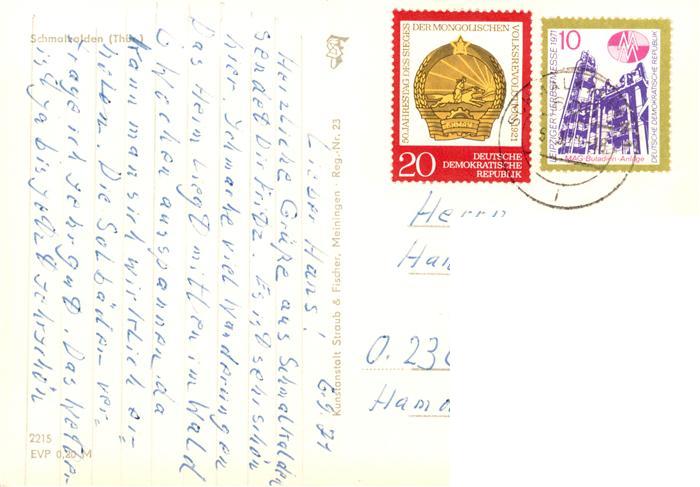 Schmalkalden (Thür.)
6.9.71
Lieber Hans!
Herzliche Grüße aus Schmalkalden
sendet Dir Fritz. Es ist sehr schön
hier ich mache viel Wanderungen
Das Heim liegt mitten im Wald
6 Wochen ausspannen, da
kann man sich wirklich er-
holen. Die Solbäder ver-
trage ich sehr gut. Das Wetter
ist ja bis jetzt sehr schön
2215
EVP 0,20 M
Kunstanstalt Straub & Fischer, Meiningen Reg.-Nr. 23
50. JAHRESTAG DES SIEGES DER MONGOLISCHEN VOLKSREVOLUTION 1921
20 DEUTSCHE
DEMOKRATISCHE
REPUBLIK
10
LEIPZIGER HERBSTMESSE 1971
MM
MAG-Butadien-Anlage
DEUTSCHE DEMOKRATISCHE REPUBLIK
Herrn
Han
O. 23
Ham